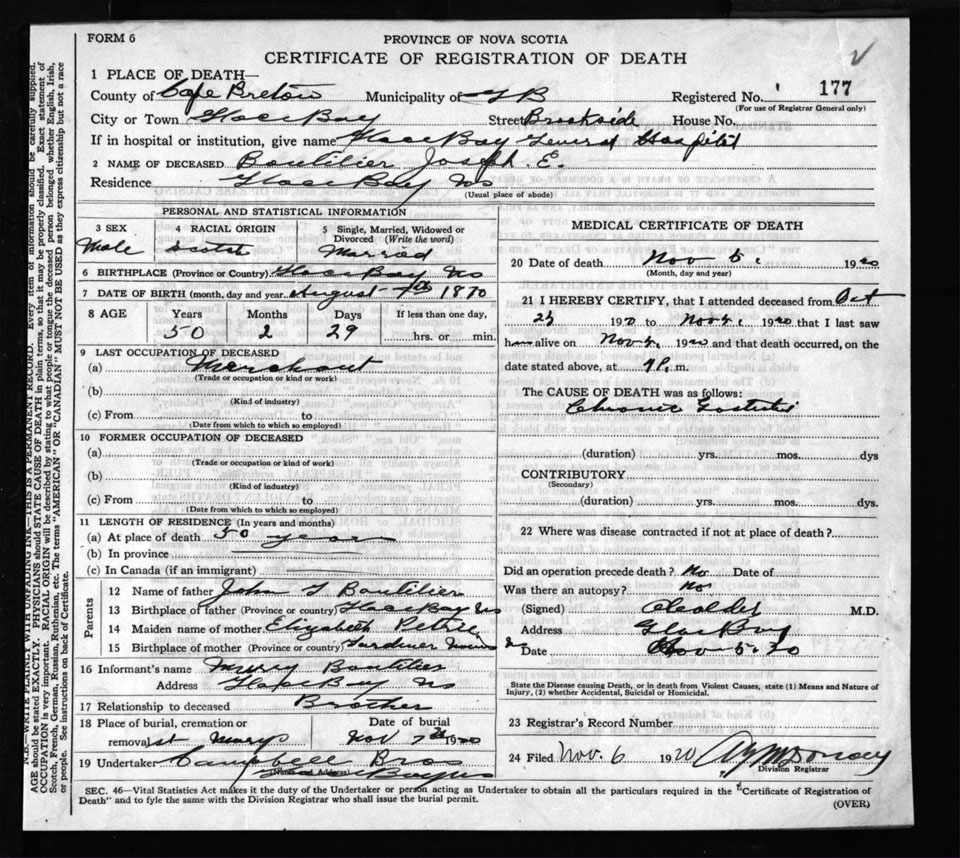 FORM 6
PROVINCE OF NOVA SCOTIA
CERTIFICATE OF REGISTRATION OF DEATH
1 PLACE OF DEATH—
County of Cape Breton Municipality of G B Registered No. 177
(For use of Registrar General only)
City or Town Glace Bay Street Brookside House No.
If in hospital or institution, give name Glace Bay General Hospital
2 NAME OF DECEASED Boutilier Joseph. E.
Residence Glace Bay NS
(Usual place of abode)
PERSONAL AND STATISTICAL INFORMATION
3 SEX 4 RACIAL ORIGIN 5 Single, Married, Widowed or
Divorced (Write the word)
Male Scotch Married
6 BIRTHPLACE (Province or Country) Glace Bay NS
7 DATE OF BIRTH (month, day and year August 7th 1870
8 AGE Years Months Days If less than one day,
50 2 29 hrs. or min.
9 LAST OCCUPATION OF DECEASED
(a) Merchant
(Trade or occupation or kind or work)
(b)
(Kind of industry)
(c) From to
(Date from which to which so employed)
10 FORMER OCCUPATION OF DECEASED
(a)
(Trade or occupation or kind of work)
(b)
(Kind of industry)
(c) From to
(Date from which to which so employed)
11 LENGTH OF RESIDENCE (In years and months)
(a) At place of death 50 years
(b) In province
(c) In Canada (if an immigrant)
Parents
12 Name of father John Boutilier
13 Birthplace of father (Province or country) Glace Bay NS
14 Maiden name of mother Elizabeth
15 Birthplace of mother (Province or country) Gardiner Mines NS
16 Informant's name Boutilier
Address Glace Bay NS
17 Relationship to deceased Brother
18 Place of burial, cremation or Date of burial
removal St Marys Nov 7th 1920
19 Undertaker Campbell Bros
(Name and Address) Glace Bay NS
MEDICAL CERTIFICATE OF DEATH
20 Date of death Nov 5. 1920
(Month, day and year)
21 I HEREBY CERTIFY, that I attended deceased from Oct
1920 to Nov 5. 1920 that I last saw
h alive on Nov 5. 1920 and that death occurred, on the
date stated above, at P. m.
The CAUSE OF DEATH was as follows:
Chronic Gastritis
(duration) yrs. mos. dys
CONTRIBUTORY
(Secondary)
(duration) yrs. mos. dys.
22 Where was disease contracted if not at place of death?
Did an operation precede death? No Date of
Was there an autopsy? No
(Signed) M.D.
Address Glace Bay
Date Nov 5. 20
State the Disease causing Death, or in death from Violent Causes, state (1) Means and Nature of
Injury, (2) whether Accidental, Suicidal or Homicidal.
23 Registrar's Record Number
24 Filed Nov. 6 1920
Division Registrar
SEC. 46—Vital Statistics Act makes it the duty of the Undertaker or person acting as Undertaker to obtain all the particulars required in the "Certificate of Registration of
Death" and to fyle the same with the Division Registrar who shall issue the burial permit.
(OVER)
N.B.—WRITE PLAINLY WITH UNFADING INK—THIS IS A PERMANENT RECORD. Every item of information should be carefully supplied.
AGE should be stated EXACTLY. PHYSICIANS should STATE CAUSE OF DEATH in plain terms, so that it may be properly classified. Exact statement of
OCCUPATION is very important. RACIAL ORIGIN will be described by stating to what people or tongue the deceased person belonged whether English, Irish,
Scotch, French, German, Russian, Ruthenian, etc. The terms "AMERICAN" OR "CANADIAN" MUST NOT BE USED as they express citizenship but not a race
or people. See instructions on back of Certificate.